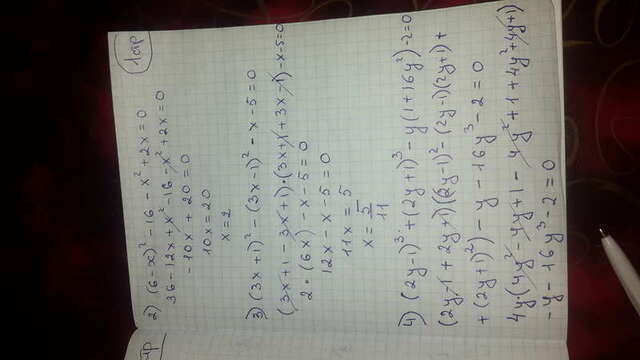 1 стр
2) (6-x)² - 16 - x² + 2x = 0
36 - 12x + x² - 16 - x² + 2x = 0
-10x + 20 = 0
10x = 20
x = 2
3) (3x+1)² - (3x-1)² - x - 5 = 0
(3x+1 - 3x+1)·(3x+1+3x-1) - x - 5 = 0
2·(6x) - x - 5 = 0
12x - x - 5 = 0
11x = 5
x = 5/11
4) (2y-1)³ + (2y+1)³ - y(1+16y²) - 2 = 0
(2y-1+2y+1)((2y-1)² - (2y-1)(2y+1) +
+ (2y+1)²) - y - 16y³ - 2 = 0
4y(4y² - 4y + 1 - 4y² + 1 + 4y² + 4y + 1)
- y - 16y³ - 2 = 0